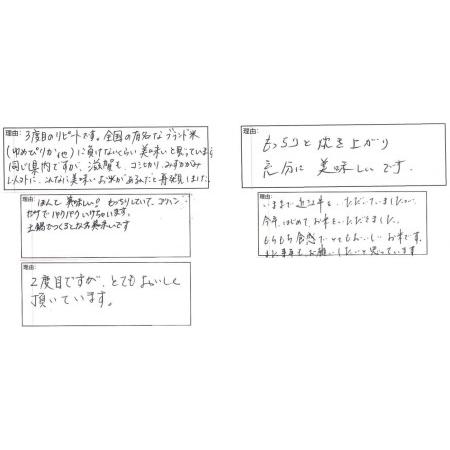 理由: 3度目のリピートです。全国の有名なブランド米
(ゆめぴりか他)に負けないくらい美味いと思っています
同じ県内ですが、滋賀も、コシヒカリ、みずかがみ
以外に、こんなに美味いお米があるんだと再発見しました
理由: ほんと美味しい。もっちりしていて、
だけでパクパクいけちゃいます。
土鍋でつくるとなお美味いです
理由:
2度目ですが、とてもおいしく
頂いています。
理由:
もっちりと炊き上がり
充分に美味しいです。
理由: いままで近江牛をいただいていましたが、
今年、はじめて、お米をいただきました。
もちもち食感でとてもおいしいお米です。
また来年もお願いしたいと思っています